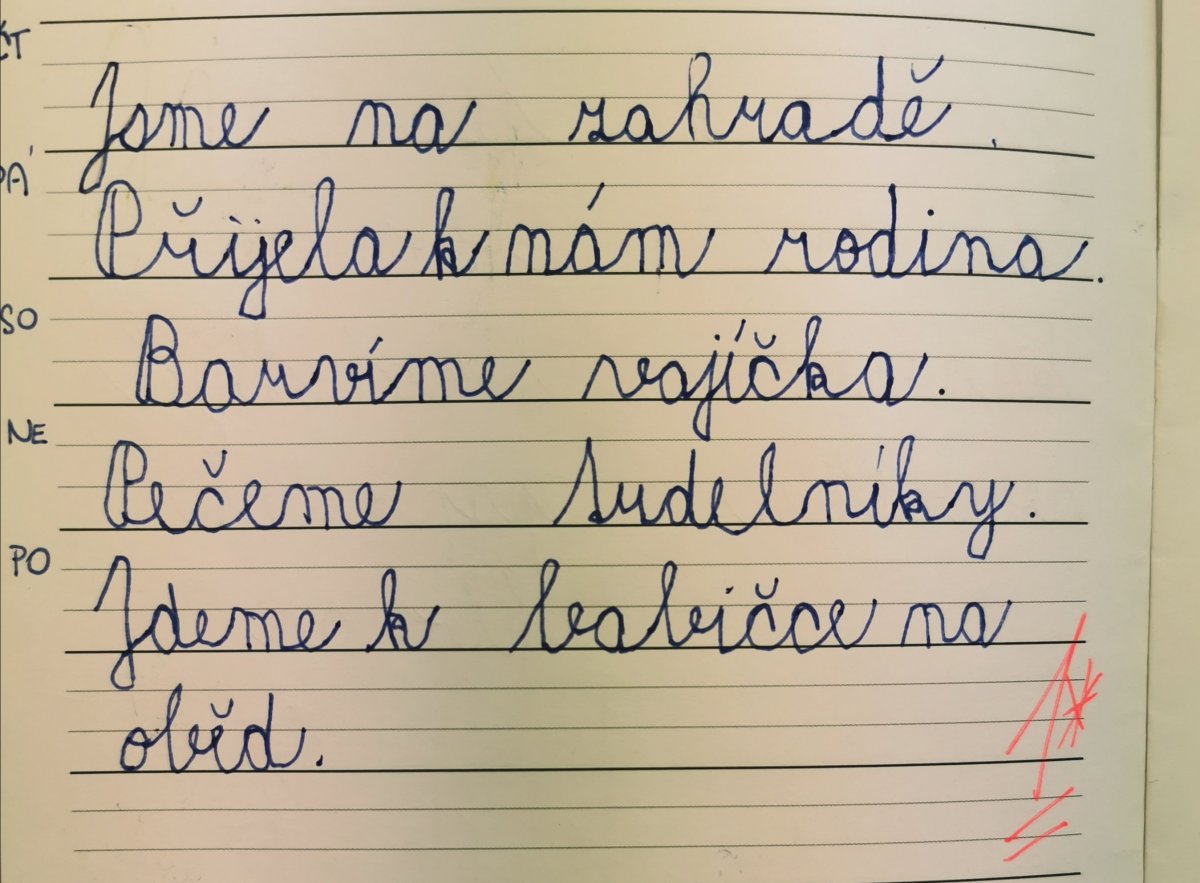 ČT
Jsme na zahradě.
PÁ
Přijela k nám rodina.
SO
Barvíme vajíčka.
NE
Pečeme
PO
Jdeme k babičce na
oběd.
1*